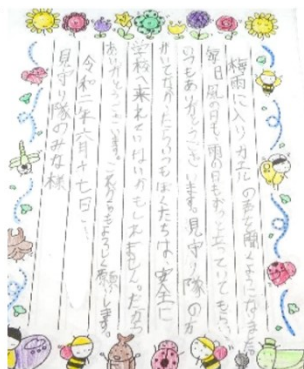 梅雨に入りカエルの声を聞くようになりました。
毎日風の日も、雨の日もずっと立っていてもらい、
いつもありがとうございます。見守り隊の方
がいてなかったらいつもぼくたちは安全に
学校へ来れていないかもしれません。だから
ありがとうございます。これからもよろしくお願いします。
令和二年六月十七日
見守り隊のみな様